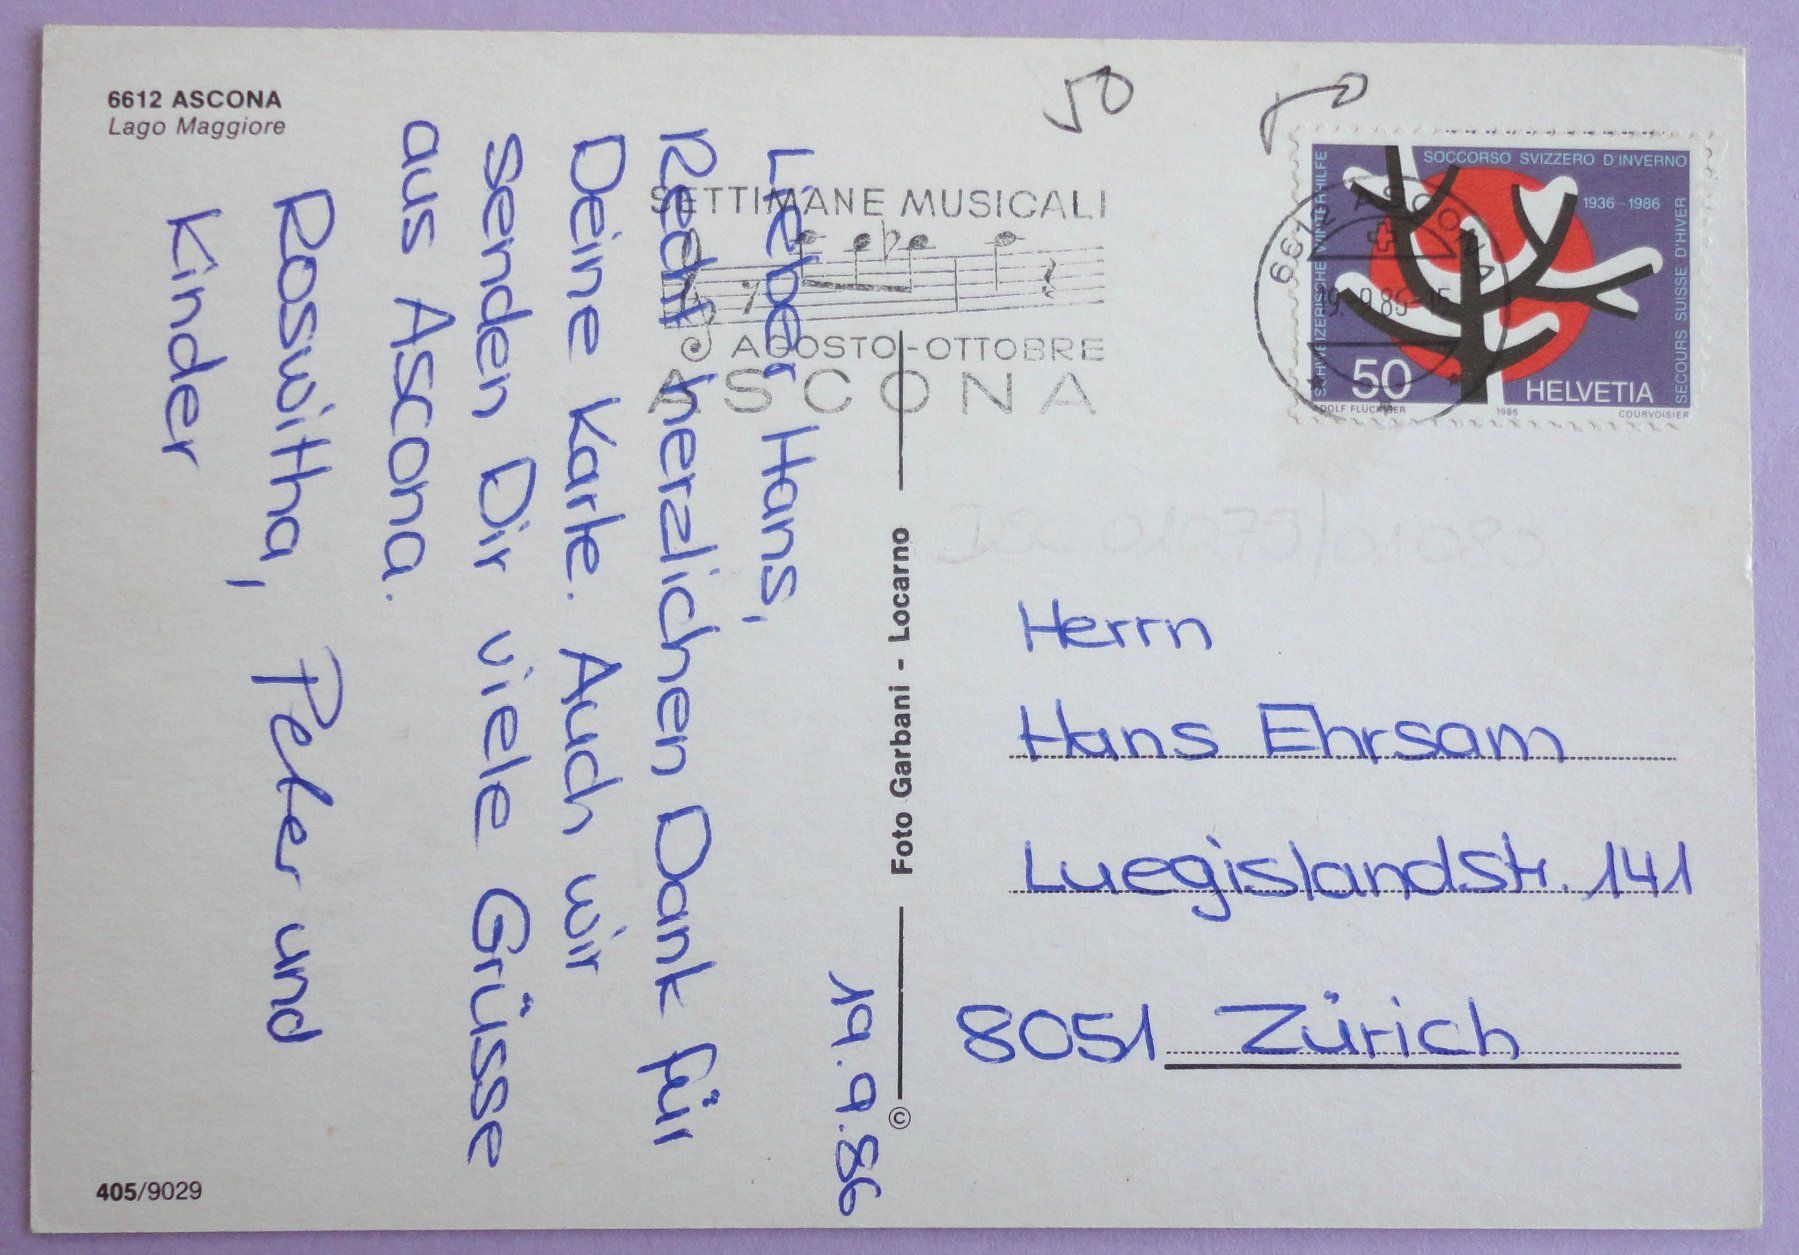 6612 ASCONA
Lago Maggiore
19.9.86
Lieber Hans,
Recht herzlichen Dank für
Deine Karte. Auch wir
senden Dir viele Grüsse
aus Ascona.
Roswitha, Peter und
Kinder
405/9029
SETTIMANE MUSICALI
AGOSTO-OTTOBRE
ASCONA
Foto Garbani - Locarno
©
50
SOCCORSO SVIZZERO D'INVERNO
1936-1986
SCHWEIZERISCHE WINTERHILFE
SECOURS SUISSE D'HIVER
50
HELVETIA
ADOLF FLÜCKIGER
1986
COURVOISIER
6612 ASCONA
Herrn
Hans Ehrsam
Luegislandstr. 141
8051 Zürich